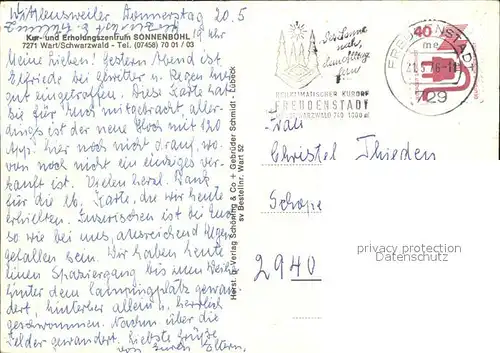 Wittlensweiler Donnerstag 20.5
19 Uhr
Kur- und Erholungszentrum SONNENBÜHL
7271 Wart/Schwarzwald - Tel. (07458) 70 01 / 03
Meine Lieben! Gestern Abend ist
Elfriede bei Gewitter u. Regen hier
gut eingetroffen. Diese Karte hat
sie für Euch mitgebracht, aller-
dings ist der neue Block mit 120
App. hier noch nicht drauf, wo-
von noch nicht ein einziges ver-
kauft ist. Vielen herzl. Dank
für die lb. Karte, die wir heute
erhielten. Inzwischen ist bei Euch
so wie bei uns, ausreichend Regen
gefallen sein. Wir haben heute
einen Spaziergang bis zum Weiher
hinter dem Campingplatz gewan-
dert, hinterher allein u. herrlich
geschwommen. Nachm. über die
Felder gewandert. Liebste Grüße
von Euren Eltern,
Horst. u. Verlag Schöning & Co + Gebrüder Schmidt - Lübeck
sv Bestellnr. Wart 52
Der Sonne
nah,
dem Alltag
fern
HEILKLIMATISCHER KURORT
FREUDENSTADT
SCHWARZWALD 740-1000 m
FREUDENSTADT
me
21.5.76-11
729
40
Christel Thieden
Schöpe
2940
privacy protection
by